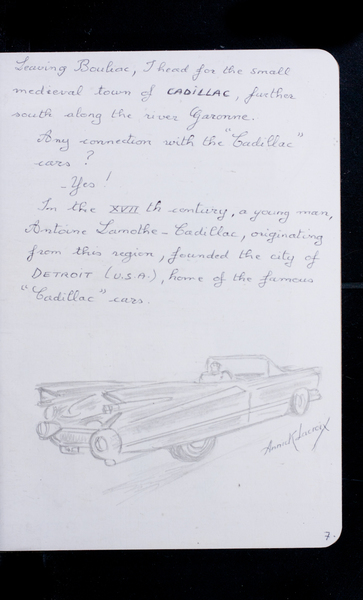 Leaving Bouliac, I head for the small
medieval town of CADILLAC, further
south along the river Garonne.
Any connection with the "Cadillac"
cars?
- Yes!
In the XVII th century, a young man,
Antoine Lamothe-Cadillac, originating
from this region, founded the city of
DETROIT (U.S.A.), home of the famous
"Cadillac" cars.
7.